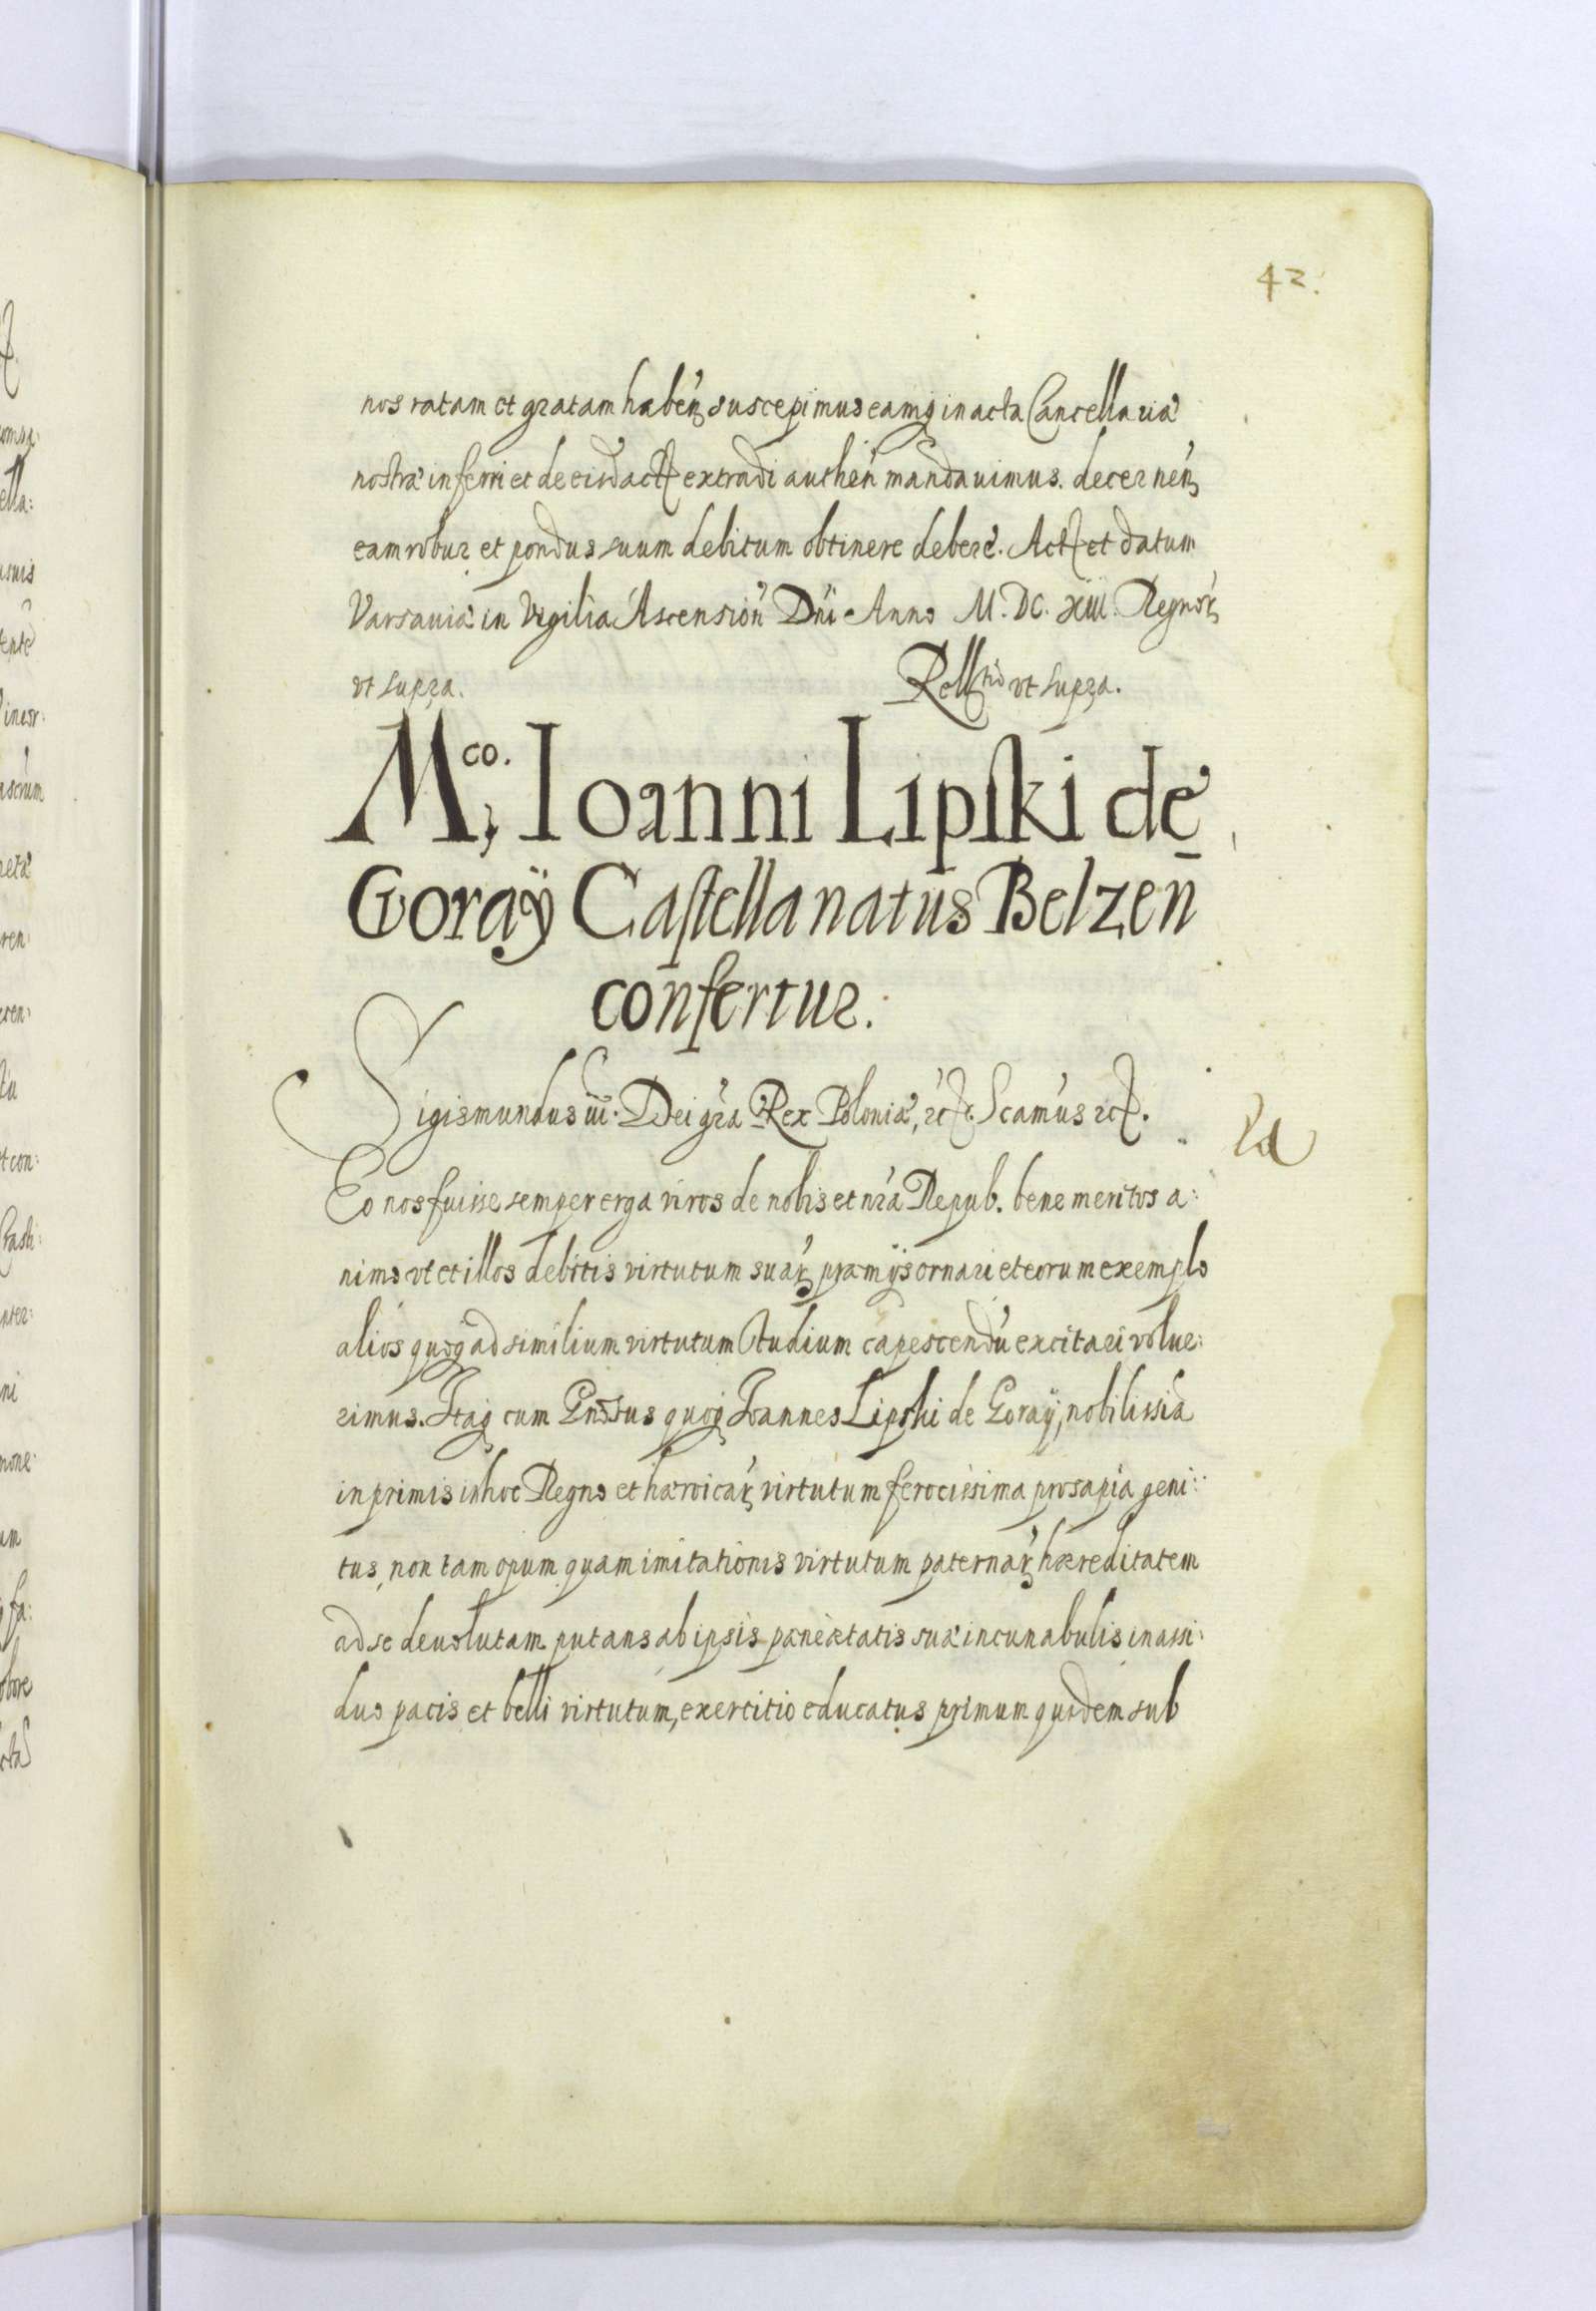 42.
nos ratam et gratam haben̄ suscepimus eamq̃ in acta Cancellariæ
nostræ inferri et de eisd̄ actꝭ extradi authen̄ mandauimus. decernen̄
eam robur et pondus suum debitum obtinere debere. Actꝭ et datum
Varsauiæ in Vigilia Ascension̄ Dn̄i Anno M. DC. xiii. Regnoꝝ
vt supra. Rel͠ltio vt supra.
M.co Ioanni Lipski de
Goraÿ Castellanatus Belzen̄
confertur.
Sigismundus iii. Dei gr̄a Rex Poloniæ, ꝛctꝭ. Scam̄us ꝛctꝭ.
Eo nos fuisse semper erga viros de nobis et nr̄a Repub. bene meritos a:
nimo vt et illos debitis virtutum suaꝝ præmijs ornari et eorum exemplo
alios quoq̃ ad similium virtutum studium capescendū excitari volue:
rimus. Itaq̃ cum Gn̄osus quoq̃ Ioannes Lipski de Goraÿ, nobilissīa
inprimis in hoc Regno et hæroicaꝝ virtutum ferocissima prosapia geni:
tus, non tam opum quam imitationis virtutum paternaꝝ hæreditatem
ad se deuolutam putans ab ipsis pæne ætatis suæ incunabulis in assi:
duo pacis et belli virtutum, exercitio educatus primum quidem sub